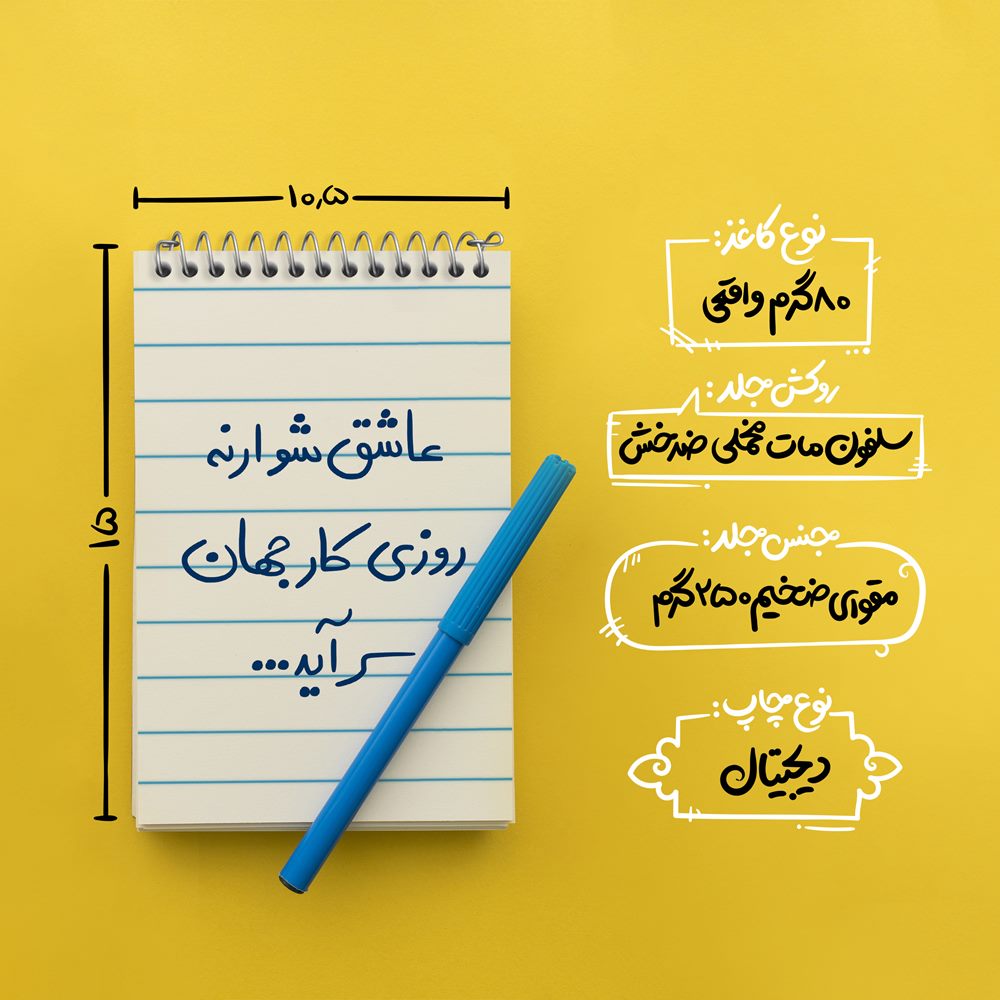 ۱۰٫۵
۱۵
عاشق شو ار نه
روزی کار جهان
سر آید...
نوع کاغذ:
۸۰ گرم واقعی
روکش جلد:
سلفون مات مخملی ضدخش
جنس جلد:
مقوای ضخیم ۲۵۰ گرم
نوع چاپ:
دیجیتال